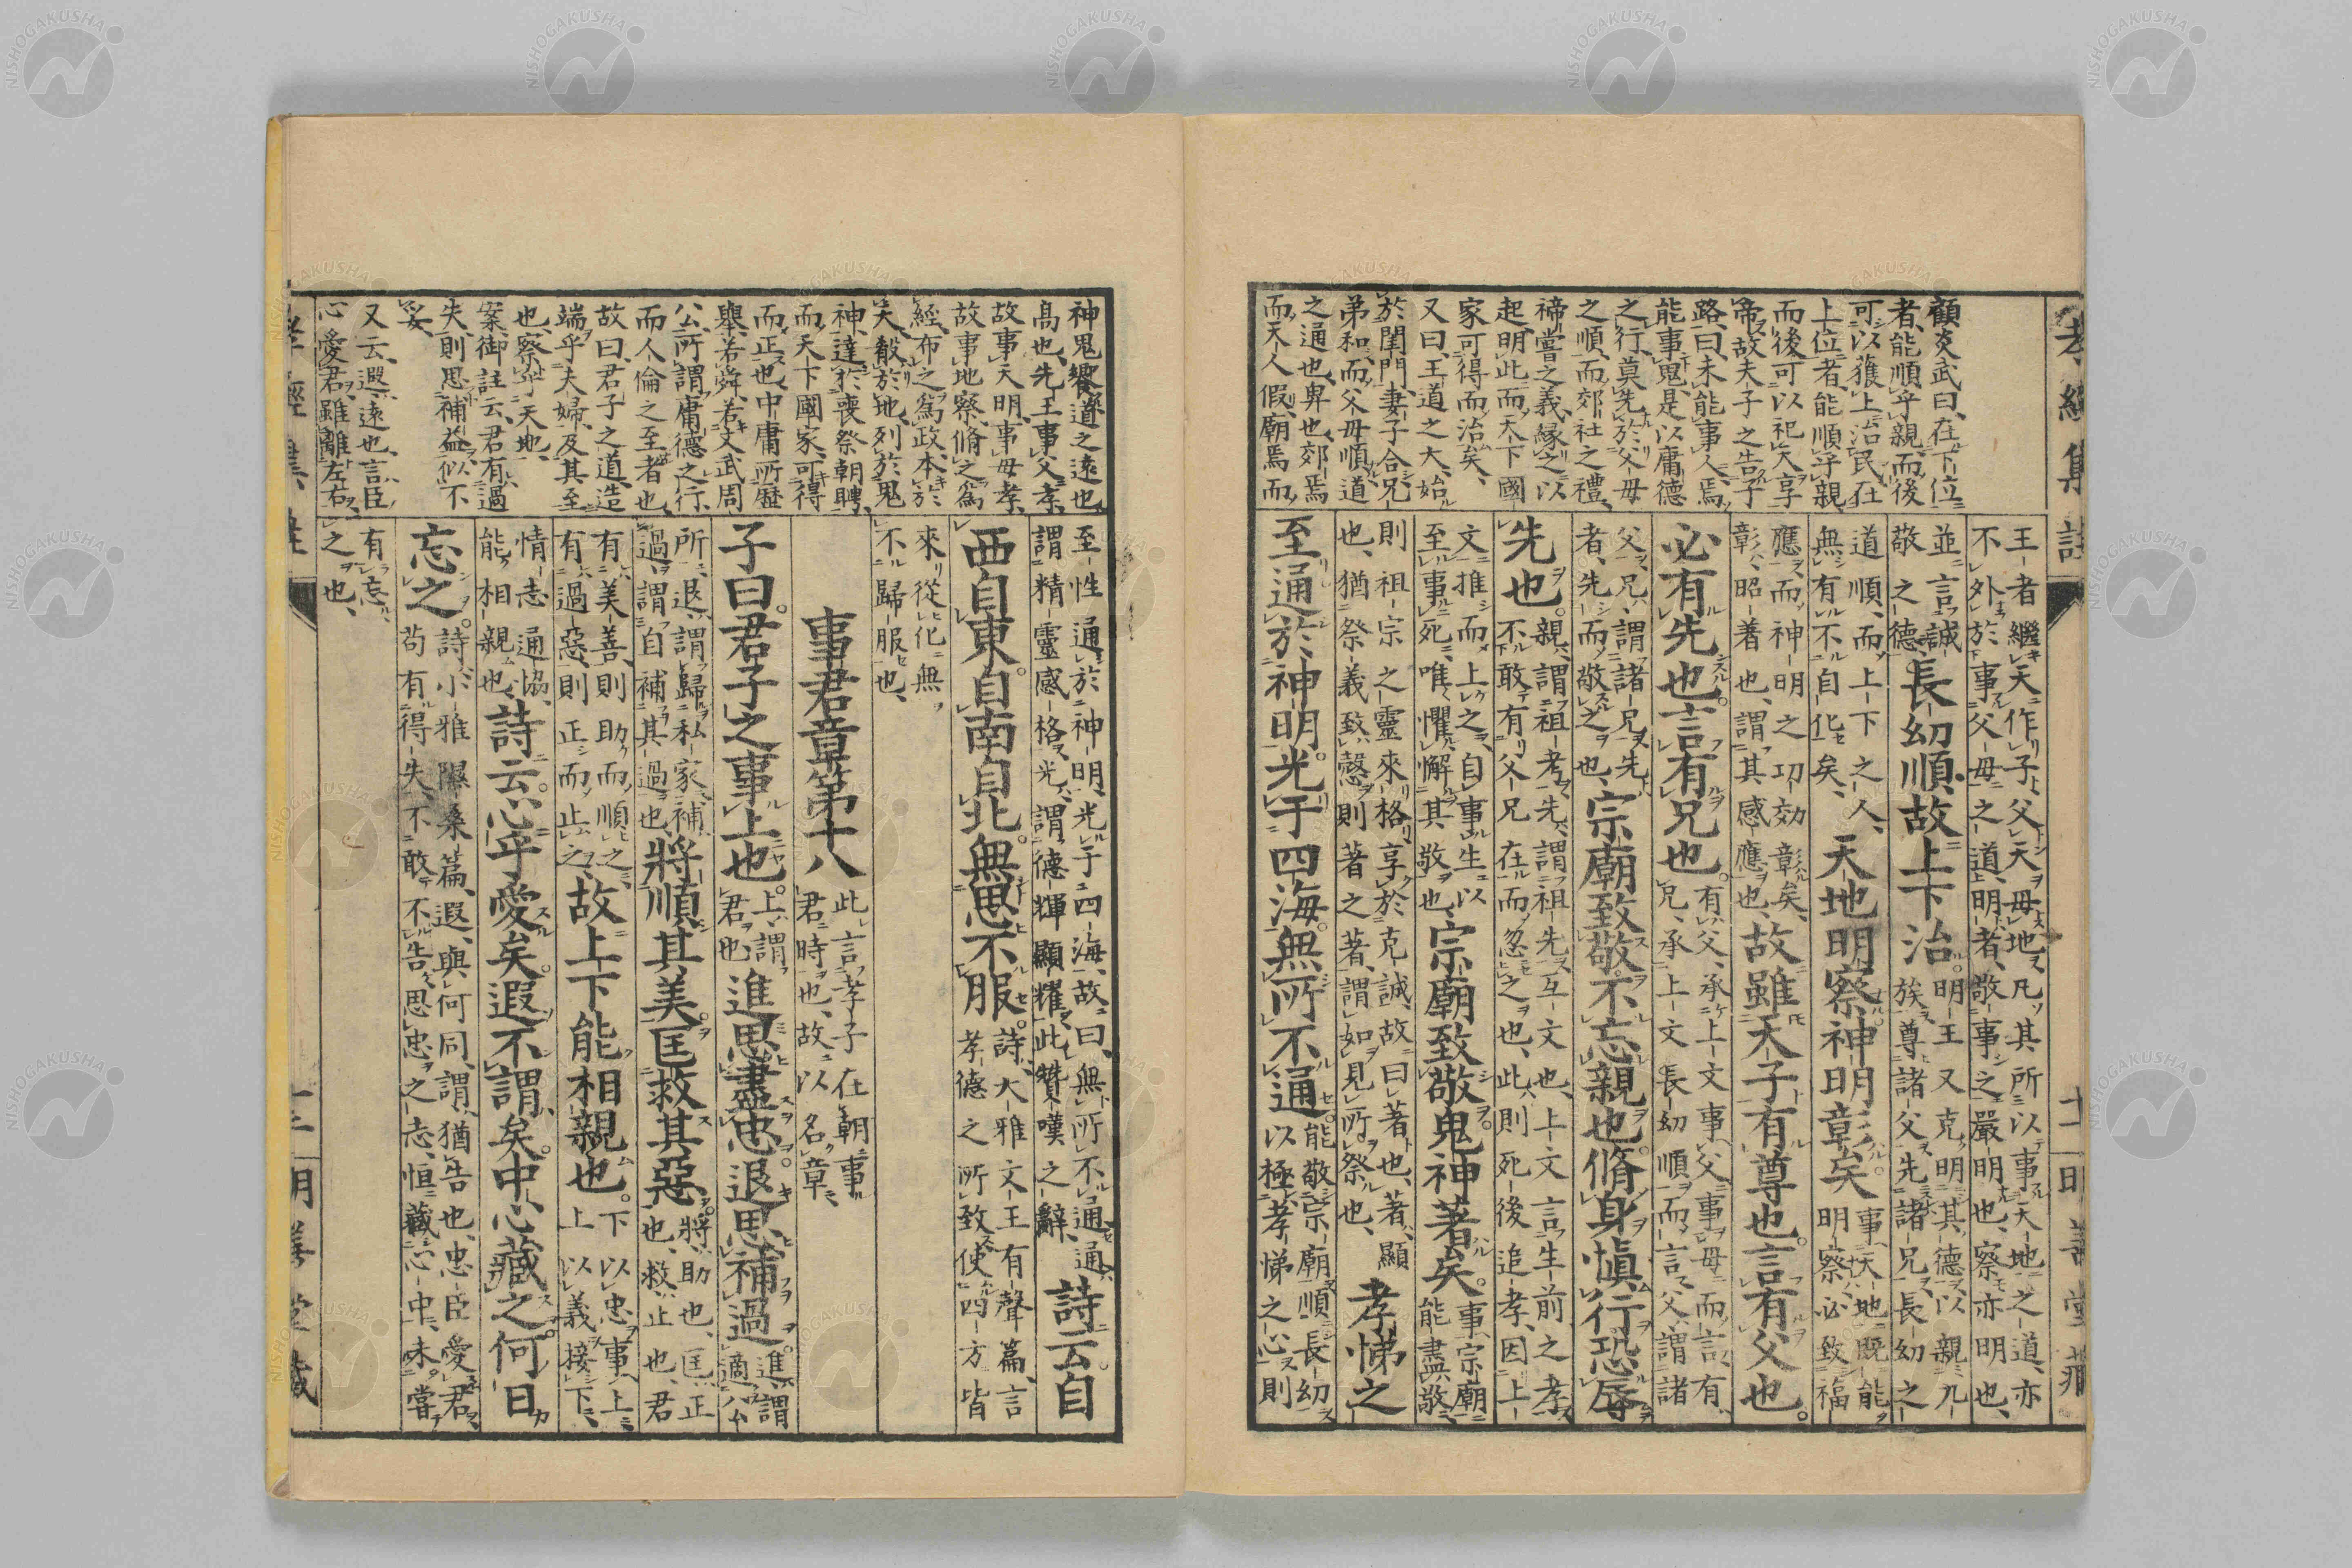 孝經集註
十二 明善堂藏
顧炎武曰、在下位
者、能順乎親、而後
可以獲上治民、在
上位者、能順乎親、
而後可以祀天享
帝、故夫子之告子
路曰、未能事人、焉
能事鬼、是以庸德
之行、莫先於父母
之順、而郊社之禮、
禘嘗之義、緣之以
起、明此而天下國
家可得而治矣、
又曰、王道之大、始
於閨門、妻子合、兄
弟和、而父母順、道
之通也、卑也、郊焉
而天人假、廟焉而
王者繼天作子、父天母地、凡其所以事天地之道、亦
不外於事父母之道、明者、敬事之嚴明也、察亦明也、
並言誠
敬之德、
長幼順。故上下治。
明王又克明其德、以親九
族、尊諸父、先諸兄、長幼之
道順、而上下之人、
無有不自化矣、
天地明察。神明彰矣。
事天地既能
明察、必致福
應、而神明之功効彰矣、
彰、昭著也、謂其感應也、
故雖天子。必有尊也。言有父也。
必有先也。言有兄也。
有父、承上文事父事母而言、有
兄、承上文長幼順而言、父、謂諸
父、兄、謂諸兄、先
者、先而敬之也、
宗廟致敬。不忘親也。脩身愼行。恐辱
先也。
親、謂祖考、先、謂祖先、互文也、上文言生前之孝、
不敢有父兄在而忽之也、此則死後追孝、因上
文推而上之、自事生以
至事死、唯懼懈其敬也、
宗廟致敬。鬼神著矣。
事宗廟
能盡敬、
則祖宗之靈來格、享於克誠、故曰著也、著、顯
也、猶祭義致慤則著之著、謂如見所祭也、
孝悌之
至。通於神明。光于四海。無所不通。
能敬宗廟、順長幼、
以極孝悌之心、則
神鬼饗、道之遠也、
高也、先王事父孝
故事天明、事母孝、
故事地察、脩之爲
經、布之爲政、本於
天、殽於地、列於鬼
神、達於喪祭朝聘、
而天下國家、可得
而正也、中庸所歷
舉、若舜、若文武周
公、所謂庸德之行、
而人倫之至者也、
故曰、君子之道、造
端乎夫婦、及其至
也、察乎天地、
案御註云、君有過
失、則思補益、似不
妥、
又云、遐、遠也、言臣
心愛君、雖離左右、
至性通於神明、光于四海、故曰、無所不通、通、
謂精靈感格、光、謂德輝顯耀、此贊嘆之辭、
詩云。自
西自東。自南自北。無思不服。
詩、大雅文王有聲篇、言
孝德之所致、使四方皆
來從化、無
不歸服也、
事君章第十八
此言孝子在朝事
君時也、故以名章、
子曰。君子之事上也。
上、謂
君也、
進思盡忠。退思補過。
進、謂
適公
所、退、謂歸私家、補
過、謂自補其過也、
將順其美。匡救其惡。
將、助也、匡、正
也、救、止也、君
有美善、則助而順之、
有過惡、則正而止之、
故上下能相親也。
下以忠事上、
上以義接下、
情志通協、
能相親也、
詩云。心乎愛矣。遐不謂矣。中心藏之。何日
忘之。
詩、小雅隰桑篇、遐、與何同、謂、猶告也、忠臣愛君、
苟有得失、不敢不告、思忠之志、恒藏心中、未嘗
有忘
之也、
孝經集註
明善堂藏